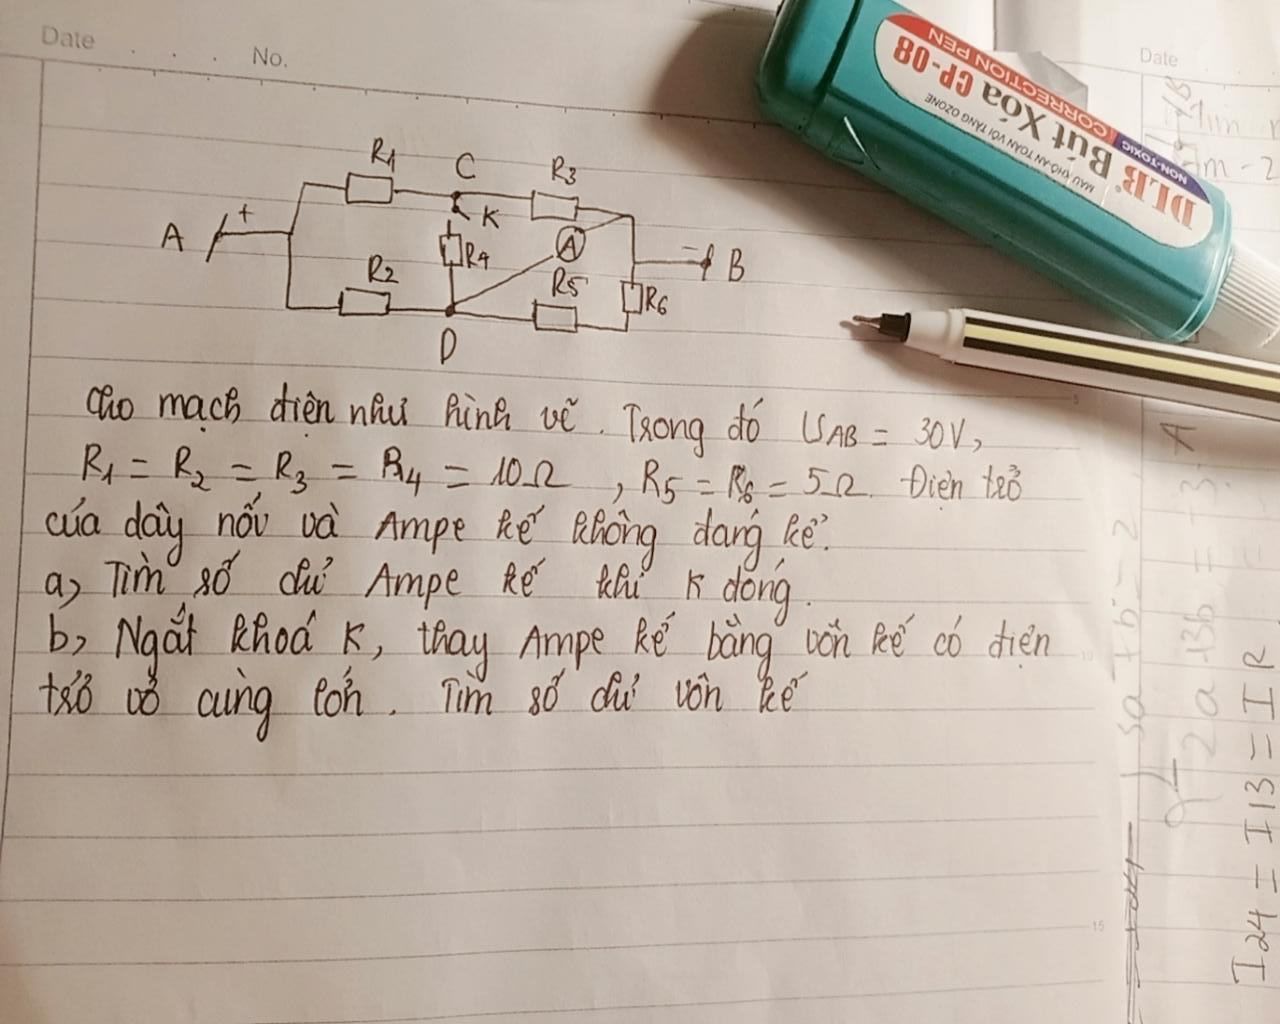 Date
No.
Date
R1
C
R3
K
A
+
R4
A
− B
R2
R5
R6
D
Cho mạch điện như hình vẽ. Trong đó UAB = 30V,
R1 = R2 = R3 = R4 = 10Ω, R5 = R6 = 5Ω. Điện trở
của dây nối và Ampe kế không đáng kể.
a, Tìm số chỉ Ampe kế khi K đóng.
b, Ngắt khoá K, thay Ampe kế bằng vôn kế có điện
trở vô cùng lớn. Tìm số chỉ vôn kế
DLB Bút Xóa CP-08
CORRECTION PEN
NON-TOXIC
MÀU KHÔ AN TOÀN VỚI TẦNG OZONE
15
I24 = I13 = I R